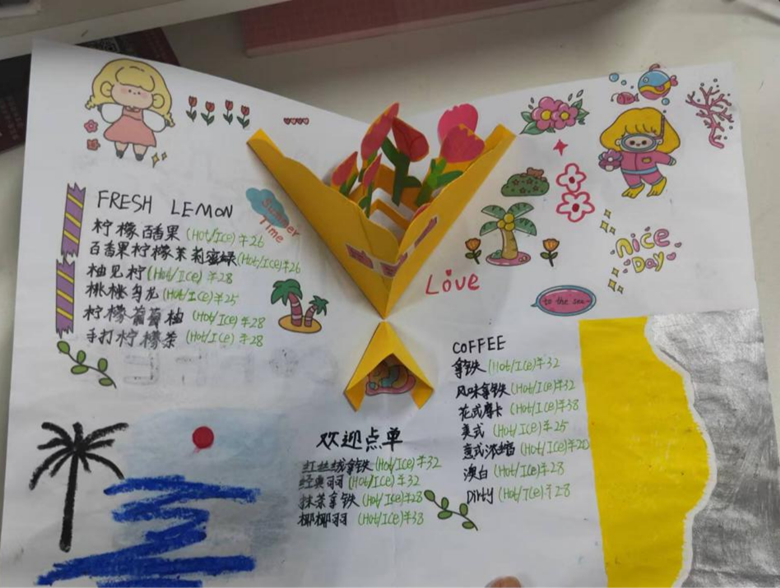 FRESH LEMON
柠檬百香果 (Hot/ICe) ¥26
百香果柠檬茉莉蜜绿 (Hot/ICe) ¥26
柚见柠 (Hot/ICe) ¥28
桃桃乌龙 (Hot/ICe) ¥25
柠檬葡萄柚 (Hot/ICe) ¥28
手打柠檬茶 (Hot/ICe) ¥28
Summer
Time
Love
nice
DAY
to the sea
COFFEE
拿铁 (Hot/ICe) ¥32
风味拿铁 (Hot/ICe) ¥32
花式摩卡 (Hot/ICe) ¥38
美式 (Hot/ICe) ¥25
意式浓缩 (Hot/ICe) ¥20
澳白 (Hot/ICe) ¥28
Dirty (Hot/ICe) ¥28
欢迎点单
红丝绒拿铁 (Hot/ICe) ¥32
经典可可 (Hot/ICe) ¥32
抹茶拿铁 (Hot/ICe) ¥28
椰椰 (Hot/ICe) ¥38